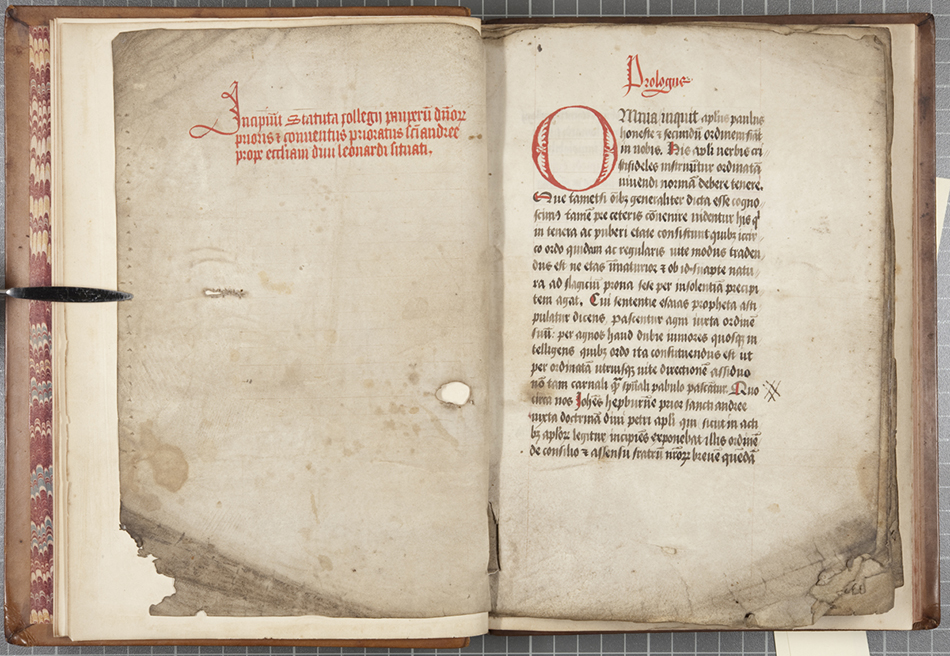 Incipiūt Statuta collegii pauperū dn̄oꝝ
prioris ⁊ conventus prioratus sc̄i andree
prope eccliam divi leonardi situati.
Prologus
OMnia inquit apl̄us paulus
honeste ⁊ secundū ordinem fiāt
in nobis. His apl̄i verbis cri
stifideles instruūtur ordinatā
vivendi normā debere tenere.
Que tametsi oīb; generaliter dicta esse cogno
scim⁹ tamē pre ceteris cōvenire videntur his q̇
in tenera ac puberi etate consistunt quib; iccir
co ordo quidam ac regularis vite modus traden
dus est ne etas īmaturior ⁊ ob id suapte natu
ra ad flagiciū prona sese per insolentiā precipi
tem agat. Cui sententie esaias propheta asti
pulatur dicens. pascentur agni iuxta ordinē
suū: per agnos haud dubie iuniores quosq; in
telligens quib; ordo ita constituendus est ut
per ordinatā utriusq; vite directionē assiduo
nō tam carnali q̄ spūali pabulo pascātur. Quo
circa nos Joh̄es hepburne prior sancti andree
iuxta doctrinā divi petri apl̄i qui sicut in acti
b; apl̄oꝝ legitur incipiēs exponebat illis ordinē
de consilio ⁊ assensu fratrū nr̄oꝝ breve quēdā